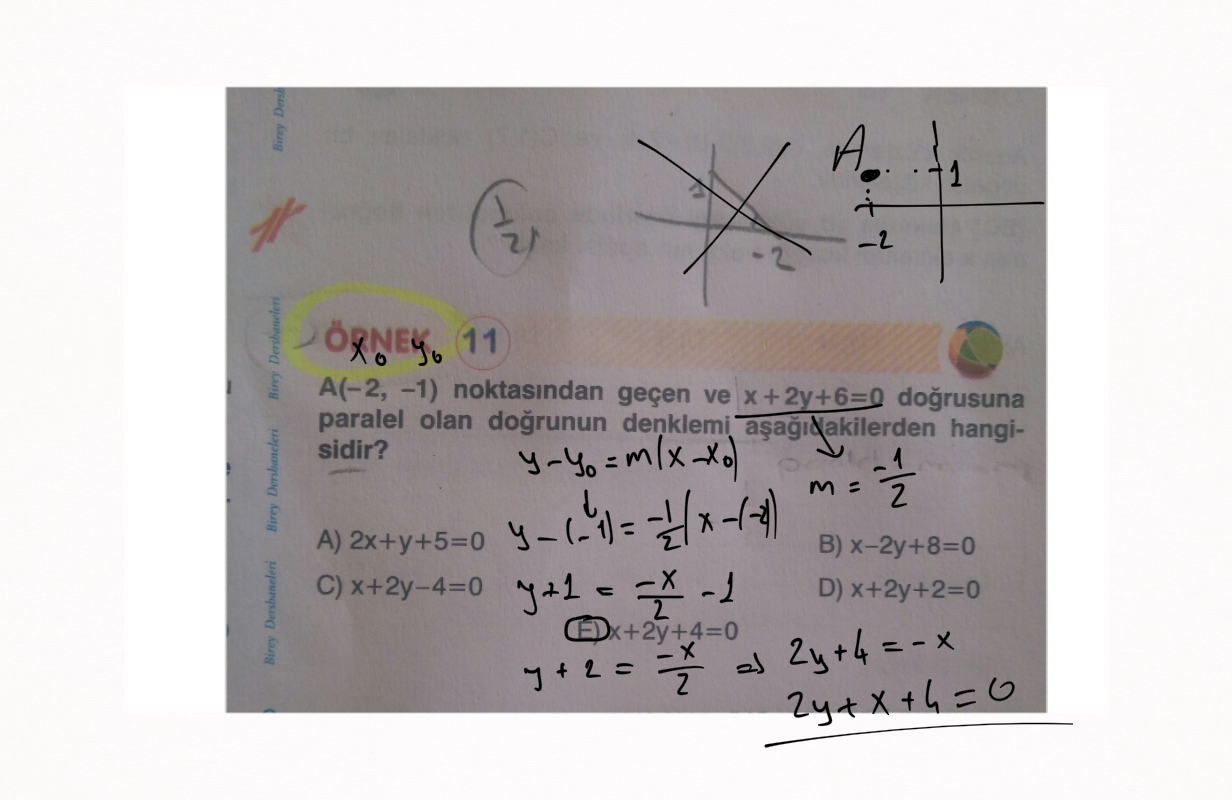 Birey Dersh
A
1
1
-2
-2
1/2
ÖRNEK 11
x₀ y₀
Birey Dershaneleri
A(−2, −1) noktasından geçen ve x+2y+6=0 doğrusuna
paralel olan doğrunun denklemi aşağıdakilerden hangi-
sidir?
y-y₀ = m(x-x₀)
m = -1/2
Birey Dershaneleri
y-(-1) = -1/2(x-(-2))
A) 2x+y+5=0
B) x−2y+8=0
C) x+2y−4=0
D) x+2y+2=0
y+1 = -x/2 -1
Birey Dershaneleri
E) x+2y+4=0
y+2 = -x/2 ⇒ 2y+4=-x
2y+x+4=0